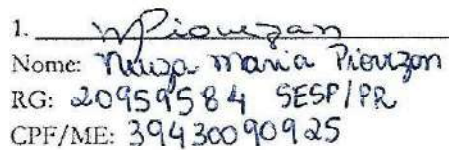 1. Piovezan
Nome: Neuza Maria Piovezon
RG: 20959584 SESP/PR
CPF/ME: 39430090925